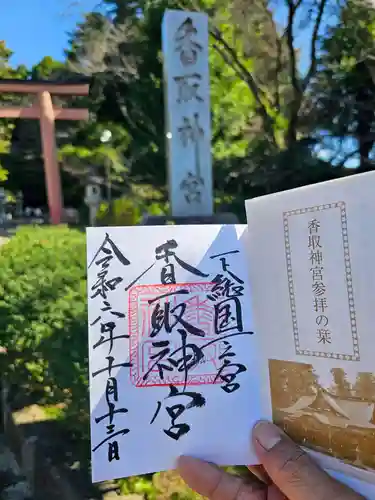 香取神宮
下総国一之宮
香取神宮
令和六年十月十三日
香取神宮参拝の栞